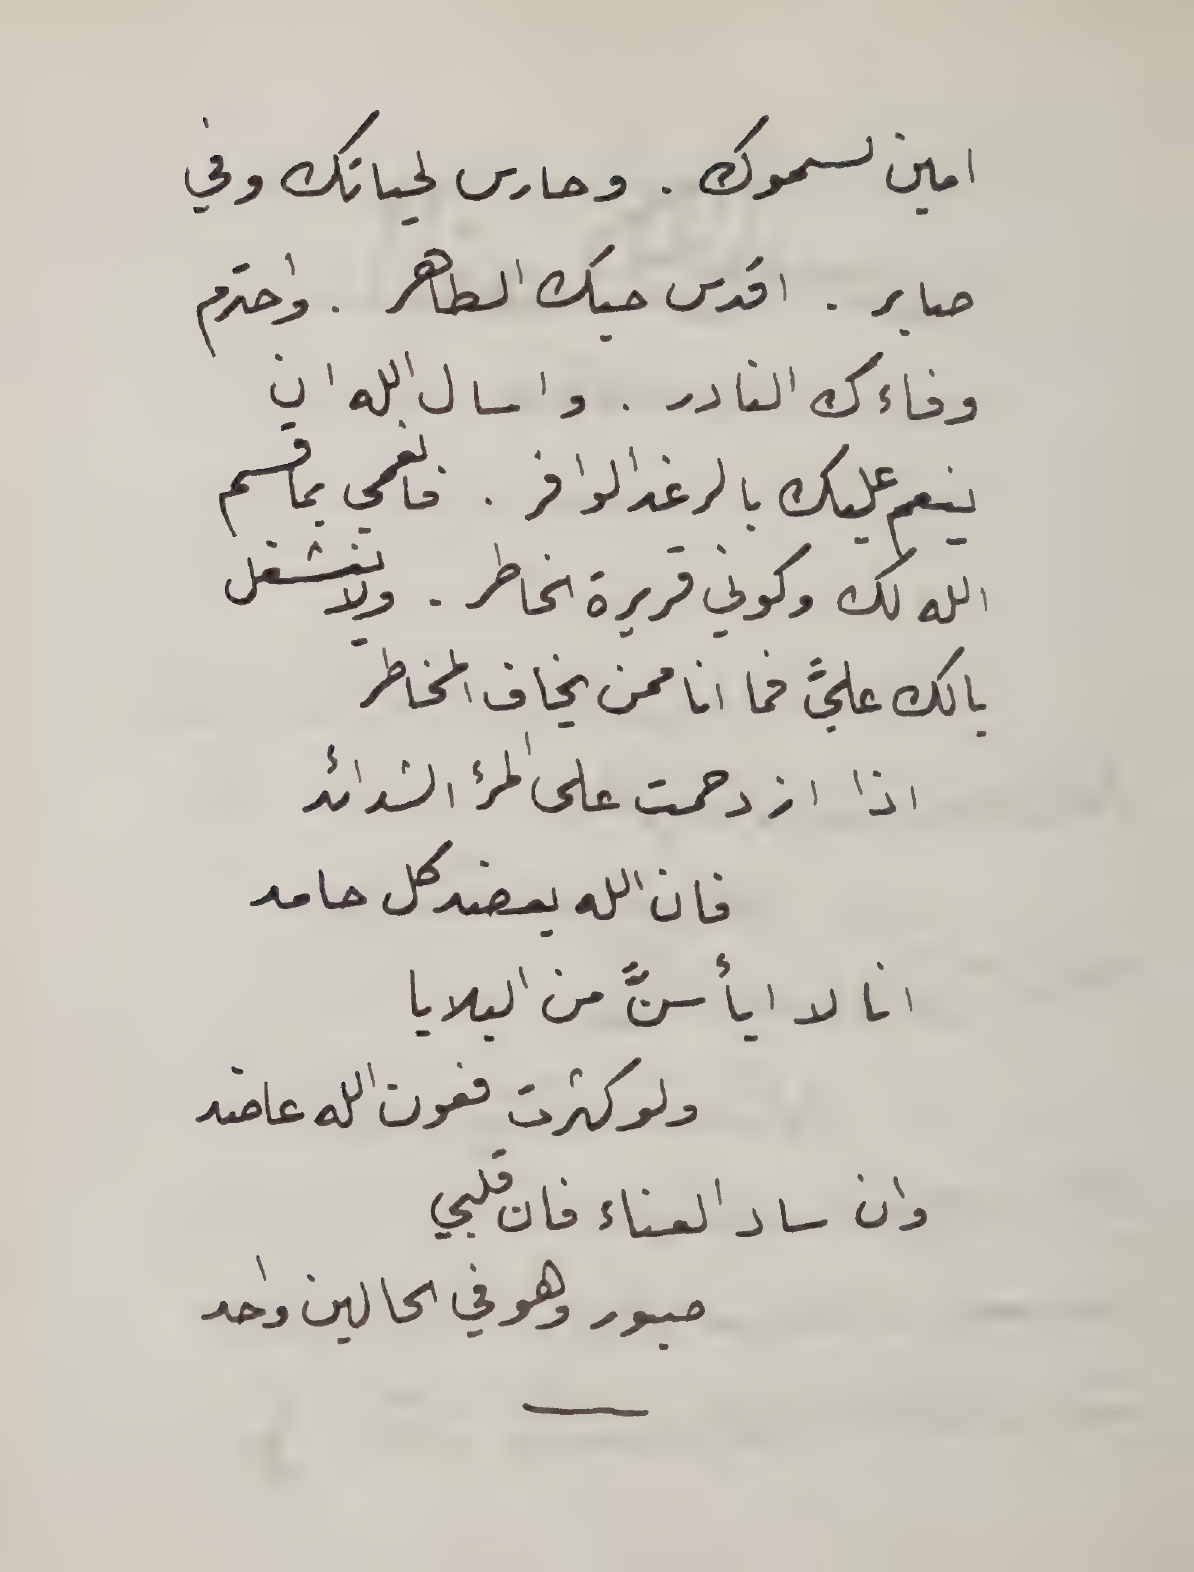 امين لسموك . وحارس لحياتك وفي
صابر . اقدس حبك الطاهر . واحترم
وفاءك النادر . واسال الله ان
ينعم عليك بالرغد الوافر . فانعمي بما قسم
الله لك وكوني قريرة الخاطر . ولا تشغل
بالك عليَّ فما انا ممن يخاف المخاطر
اذا ازدحمت على المرء الشدائد
فان الله يعضد كل حامد
انا لا ايأسنَّ من البلايا
ولو كثرت فعون الله عاضد
وان ساد العناء فان قلبي
صبور وهو في الحالين واحد